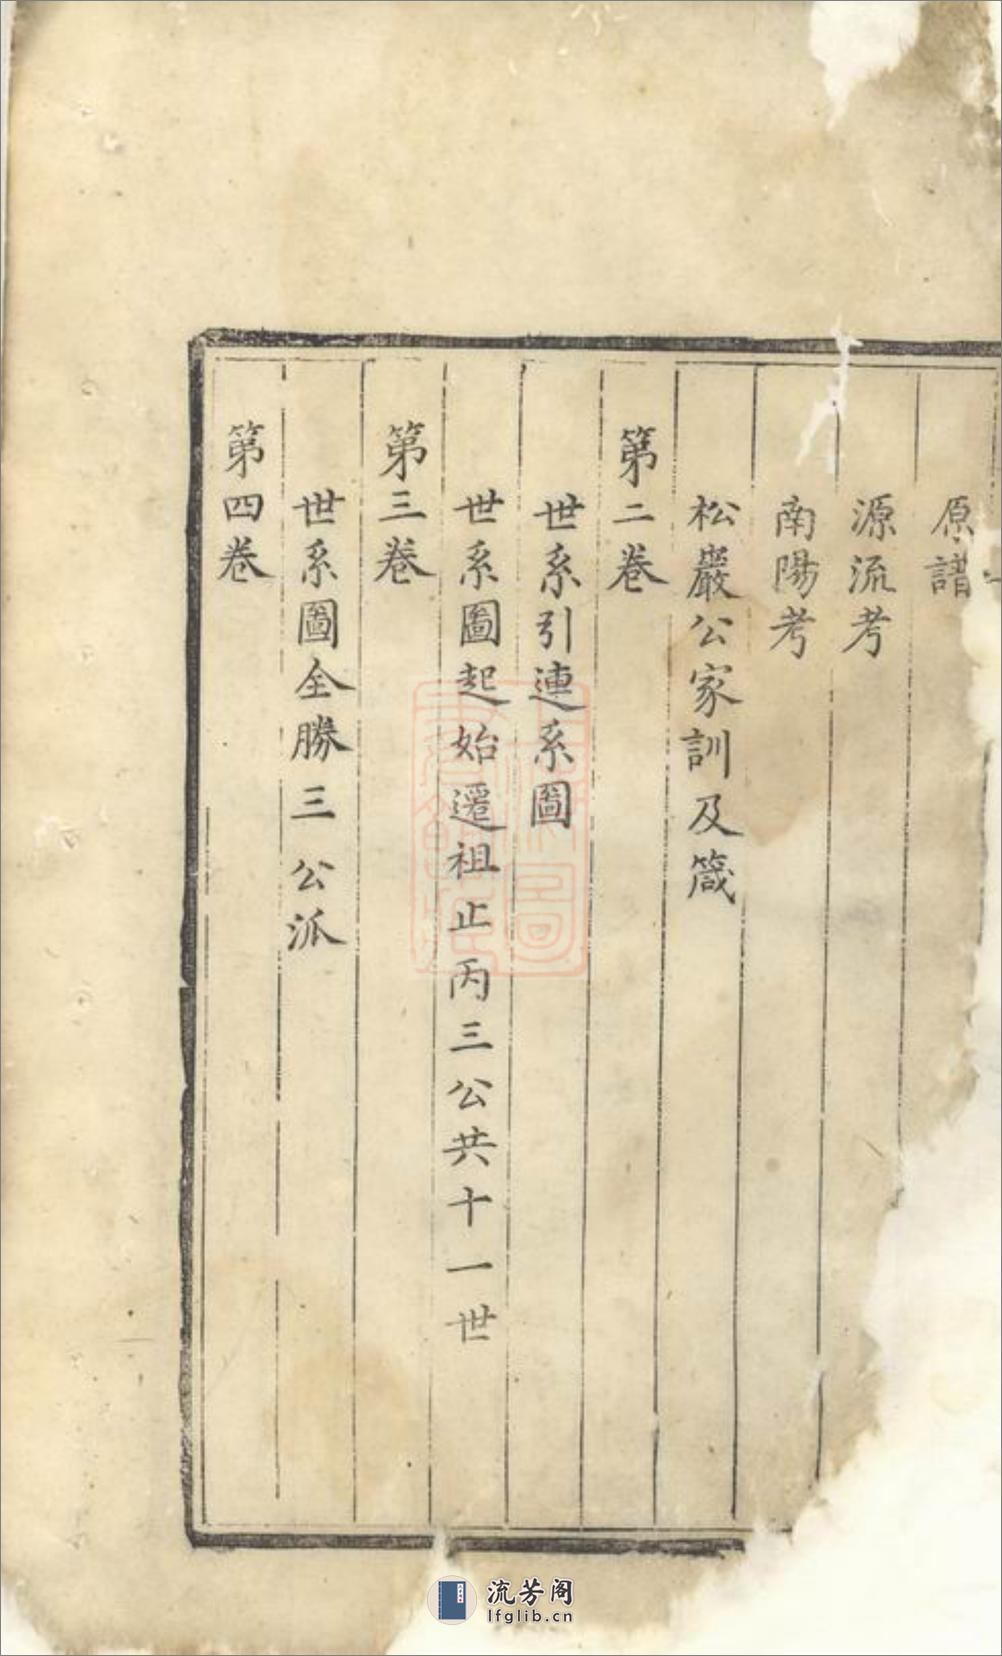 原譜
源流考
南陽考
松巖公家訓及箴
第二卷
世系引連系圖
世系圖起始遷祖止丙三公共十一世
第三卷
世系圖全勝三公派
第四卷
流芳阁
lfglib.cn